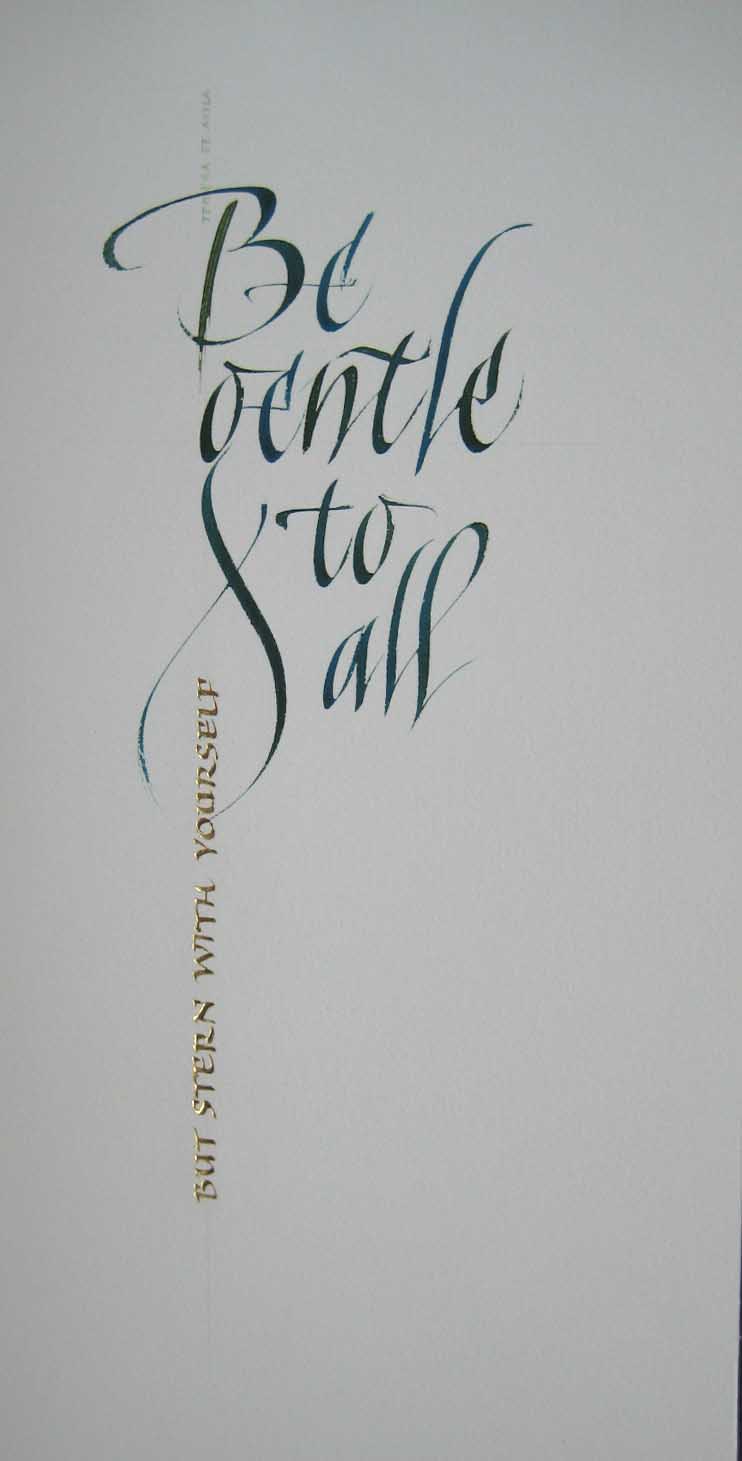 Be
gentle
to
all
BUT STERN WITH YOURSELF
TERESA AVILA